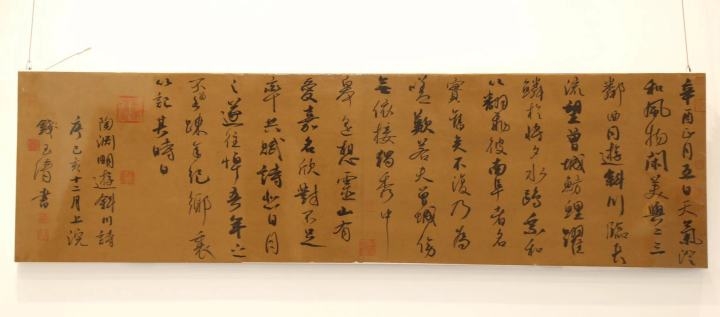 辛酉正月五日天氣澄
和風物閑美與二三
鄰曲同遊斜川臨長
流望曾城魴鯉躍
鱗於將夕水鷗乘和
以翻飛彼南阜者名
實舊矣不復乃為
嗟歎若夫曾城傍
無依接獨秀中
皋遙想靈山有
愛嘉名欣對不足
率共賦詩悲日月
之遂往悼吾年之
不留疎年紀鄉裏
以記其時日
陶淵明遊斜川詩
歲己亥十二月上浣
錢玉書